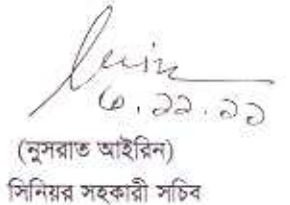 ৩.১১.১১
(নুসরাত আইরিন)
সিনিয়র সহকারী সচিব